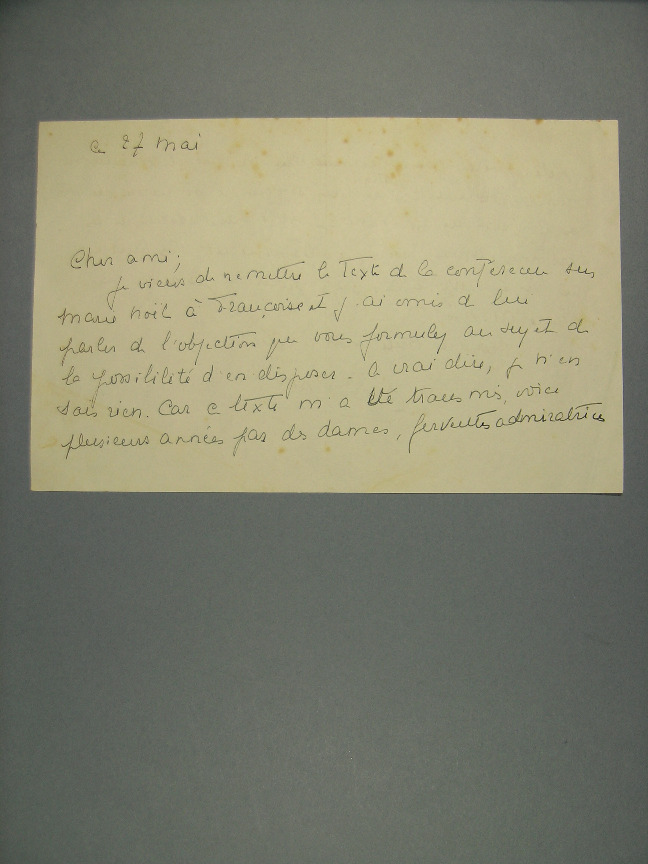 ce 27 mai
Cher ami;
je viens de remettre le texte de la conférence sur
Marie Noël à Françoise et j'ai omis de lui
parler de l'objection que vous formulez au sujet de
la possibilité d'en disposer. A vrai dire, je n'en
sais rien. Car ce texte m'a été transmis, voici
plusieurs années par des dames, ferventes admiratrices